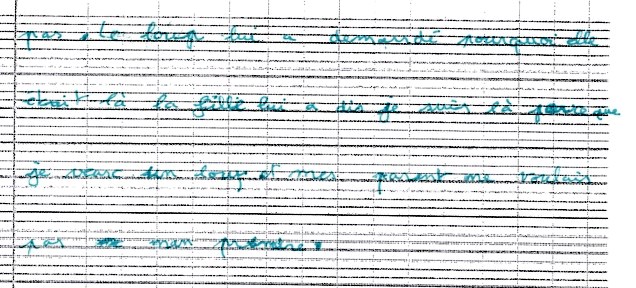 pas. Le loup lui a demandé pourquoi elle
etait là la fille lui a dis je suis là parce que
je veux un loup et mes parent me voulais
pas m'en prendre.